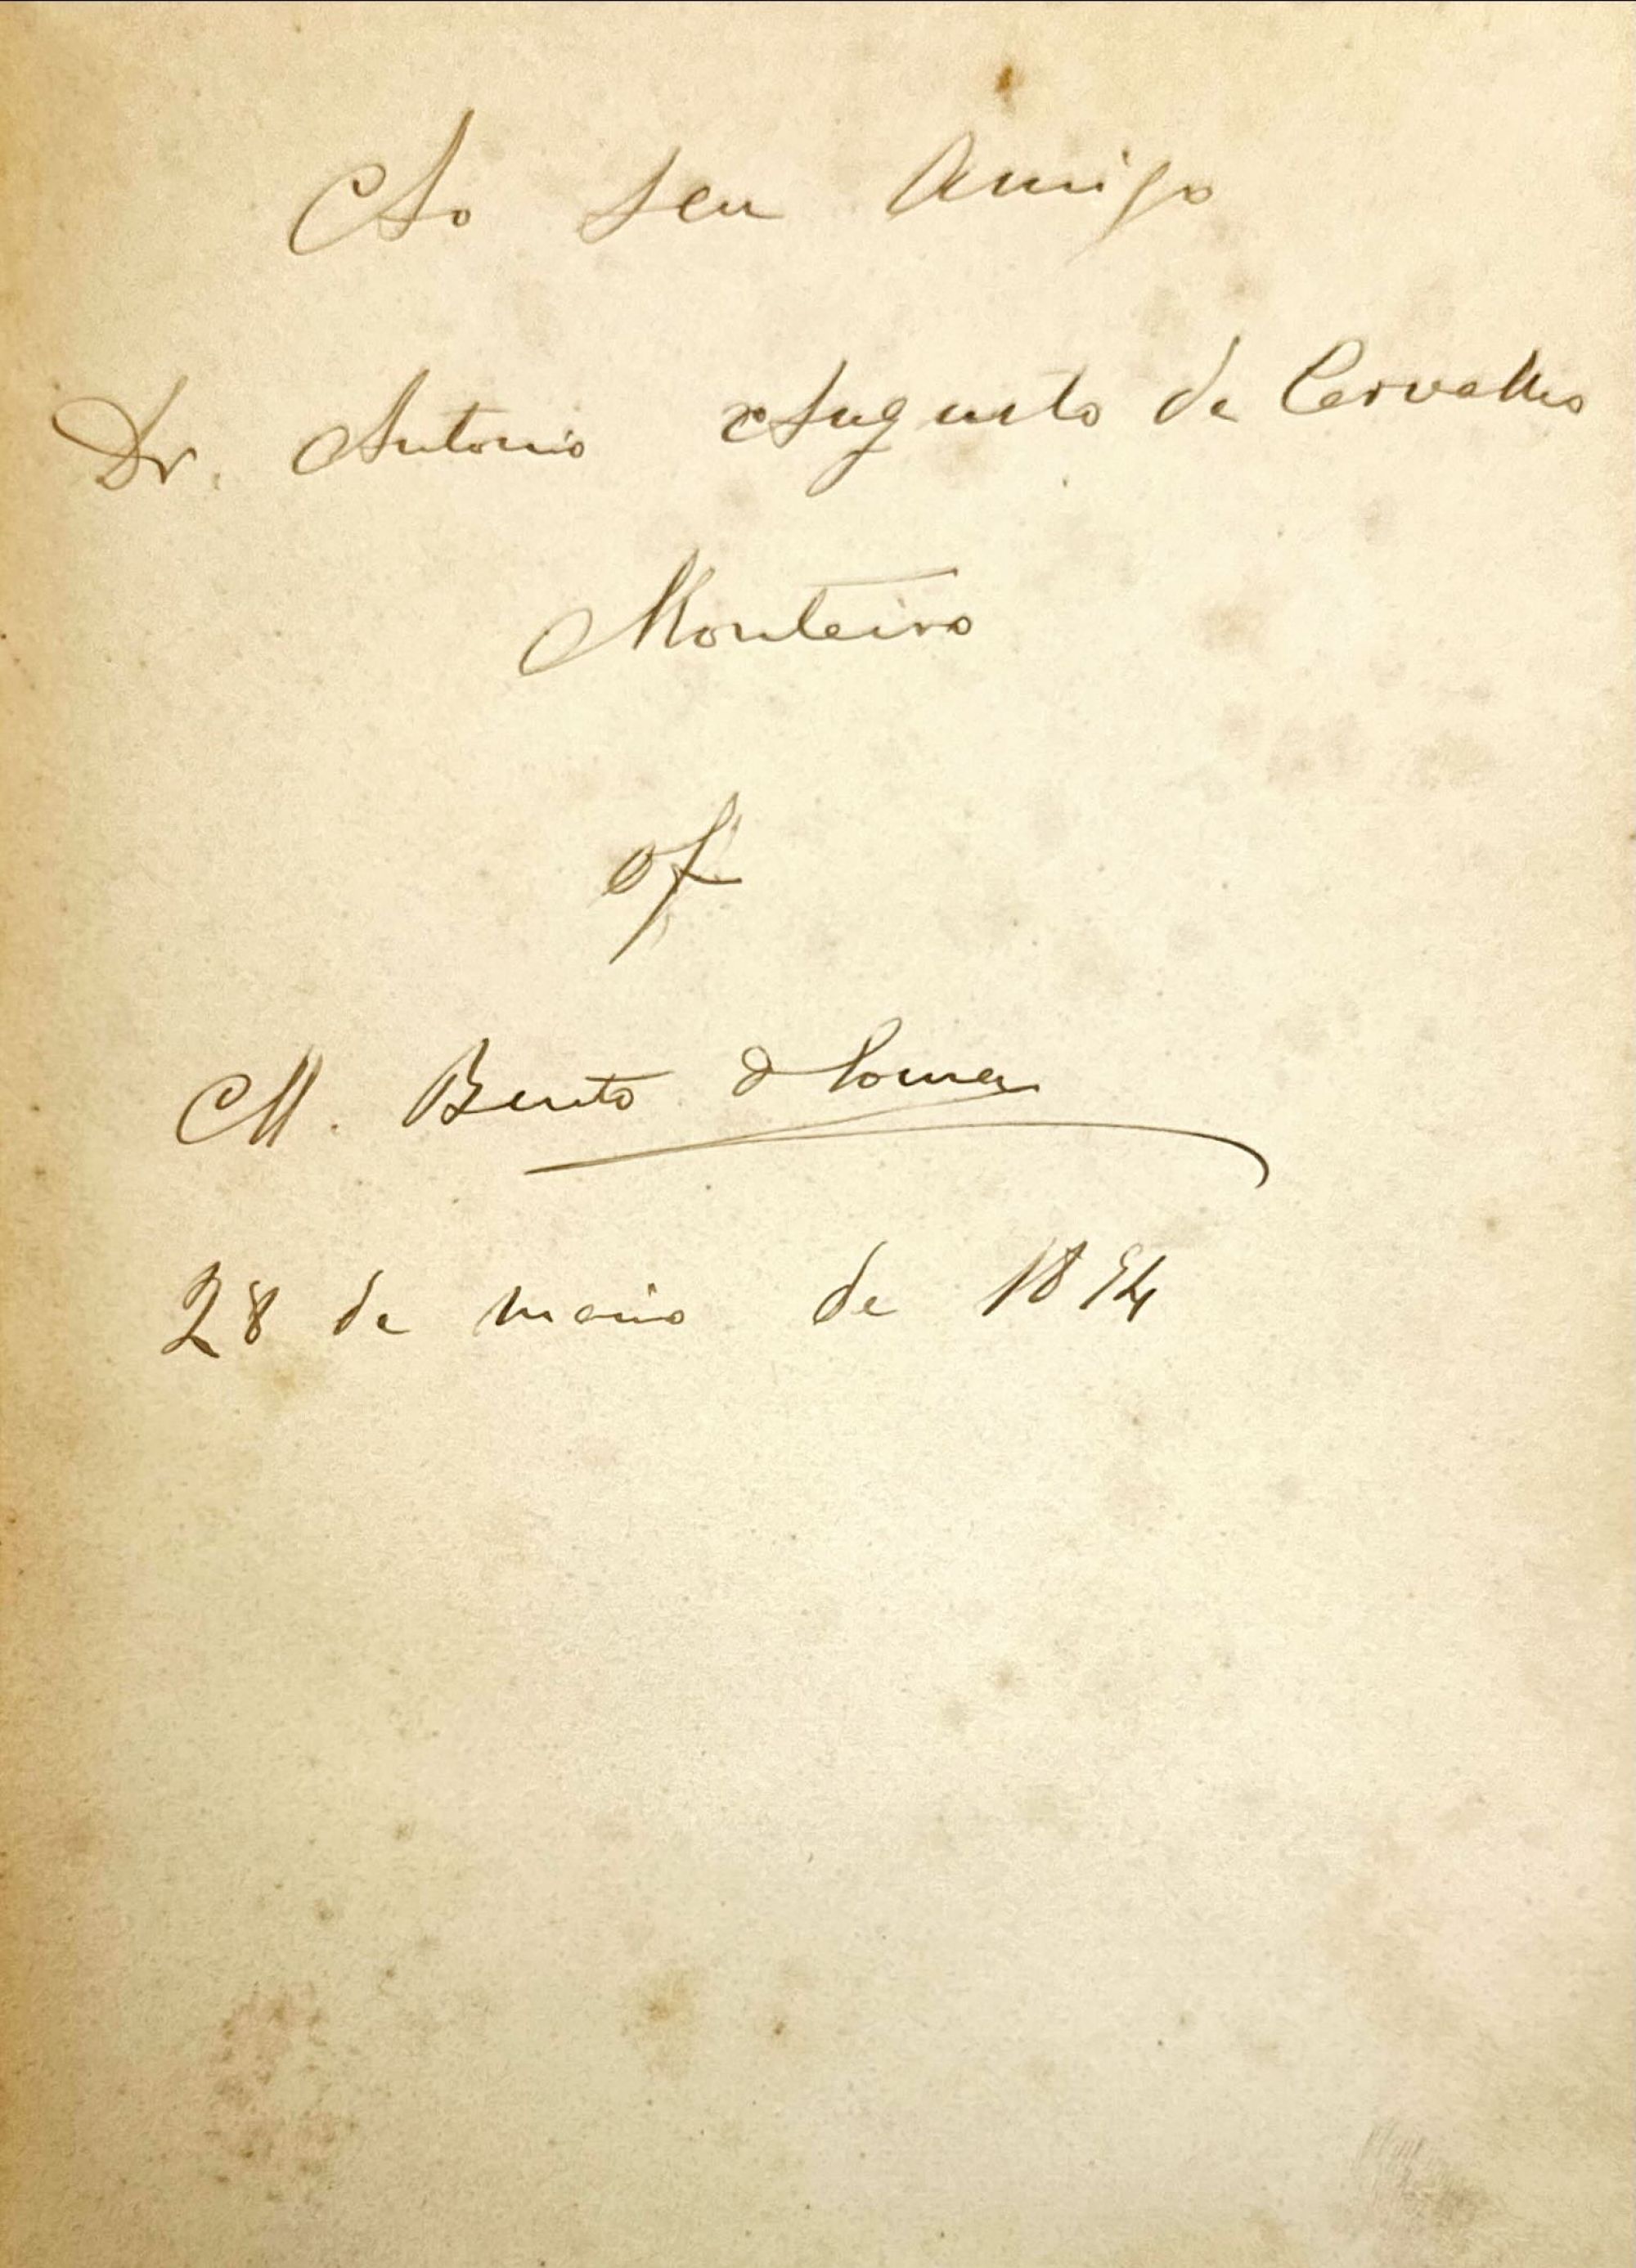 Ao seu Amigo
Dr. Antonio Augusto de Carvalho
Monteiro
of
M. Bento de Sousa
28 de maio de 1894